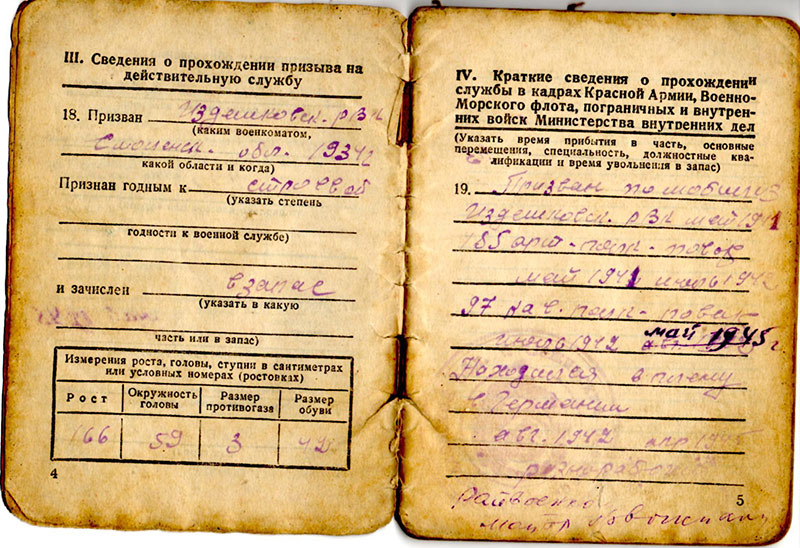 III. Сведения о прохождении призыва на
действительную службу
18. Призван Издешковск. РВК
(каким военкоматом,
Смоленск. обл. 1937г
какой области и когда)
Признан годным к строевой
(указать степень
годности к военной службе)
и зачислен в запас
(указать в какую
часть или в запас)
Измерения роста, головы, ступни в сантиметрах
или условных номерах (ростовках)
Рост
Окружность
головы
Размер
противогаза
Размер
обуви
166
59
3
42
4
IV. Краткие сведения о прохождении
службы в кадрах Красной Армии, Военно-
Морского флота, пограничных и внутрен-
них войск Министерства внутренних дел
(Указать время прибытия в часть, основные
перемещения, специальность, должностные ква-
лификации и время увольнения в запас)
19. Призван по мобилиз
Издешковск. РВК май 1941
185 арт-парк-
май 1941 июль 1942
97 парк-
июль 1942 май 1945г
Находился в плену
в Германии
авг. 1942 апр 1945
разнорабоч
Райвоенком
майор
5